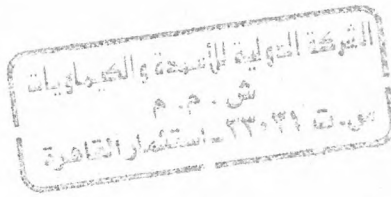 الشركة الدولية للأسمدة والكيماويات
ش . م . م
س . ت ٢٣٠٣٩ - استثمار القاهرة